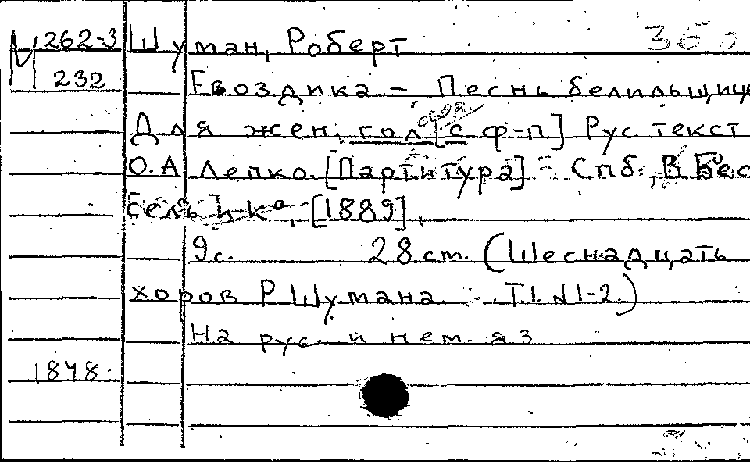 М 262-3 Шуман, Роберт
232 Гвоздика – Песнь белильщиц
Для жен. гол [с ф-п] Рус текст
О.А Лепко. [Партитура] – Спб., В Бес
сель и к°, [1889],
9 с. 28 см. (Шеснадцать
хоров Р Шумана Т.1. N 1-2.)
На рус и нем яз
1878